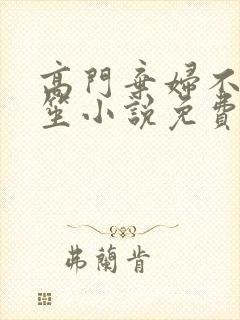 高門棄婦不
笙小說免費
弗蘭肯